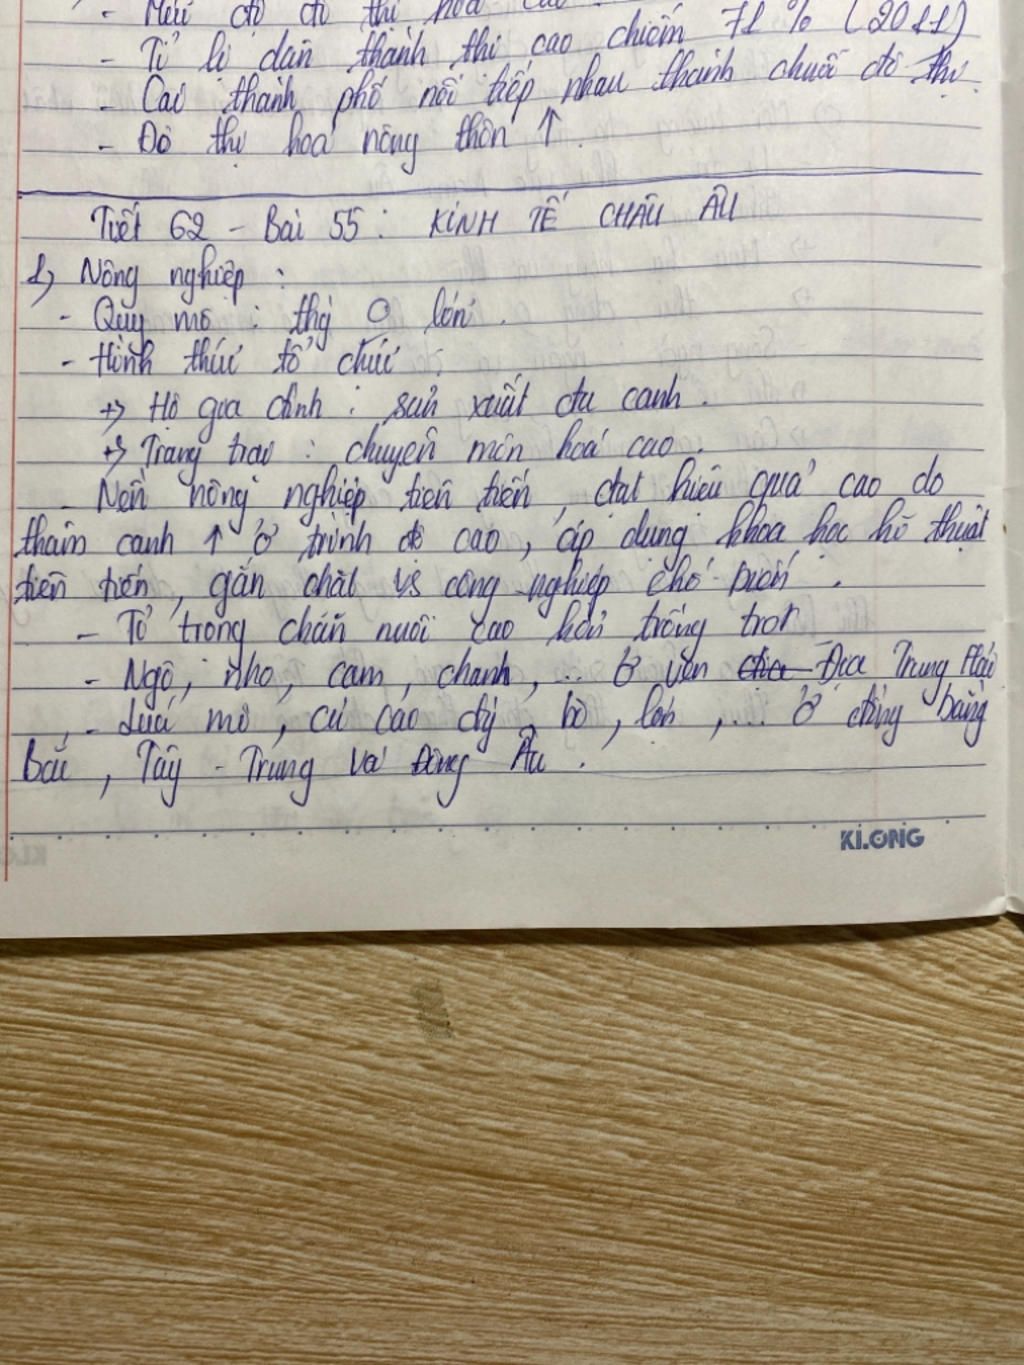 - Mức độ đô thị hoá cao
- Tỉ lệ dân thành thị cao, chiếm 71 % (2011)
- Các thành phố nối tiếp nhau thành chuỗi đô thị
- Đô thị hoá nông thôn ↑.
Tiết 62 - Bài 55 : KINH TẾ CHÂU ÂU
1, Nông nghiệp :
- Quy mô : thg O lớn .
- Hình thức tổ chức :
+> Hộ gia đình : sản xuất đa canh .
+> Trang trại : chuyên môn hoá cao .
- Nền nông nghiệp tiên tiến , đạt hiệu quả cao do
thâm canh ↑ ở trình độ cao , áp dụng khoa học kĩ thuật
tiên tiến , gắn chặt vs công nghiệp chế biến .
- Tỉ trọng chăn nuôi cao hơn trồng trọt
- Ngô , nho , cam , chanh , ... ở ven Địa Trung Hải
- Lúa mì , củ cải đg , bò , lợn , ... ở đồng bằng
Bắc , Tây - Trung và Đông Âu .
KLONG